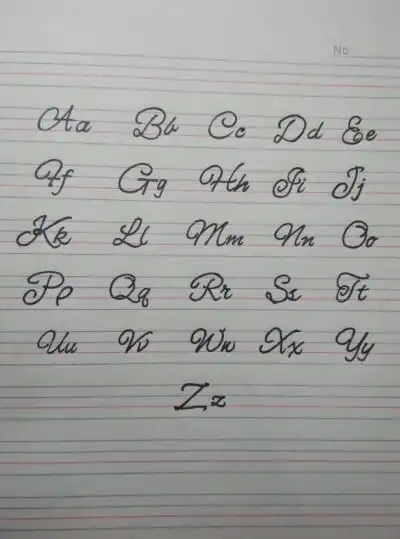 No
Aa Bb Cc Dd Ee
Ff Gg Hh Ii Jj
Kk Ll Mm Nn Oo
Pp Qq Rr Ss Tt
Uu Vv Ww Xx Yy
Zz